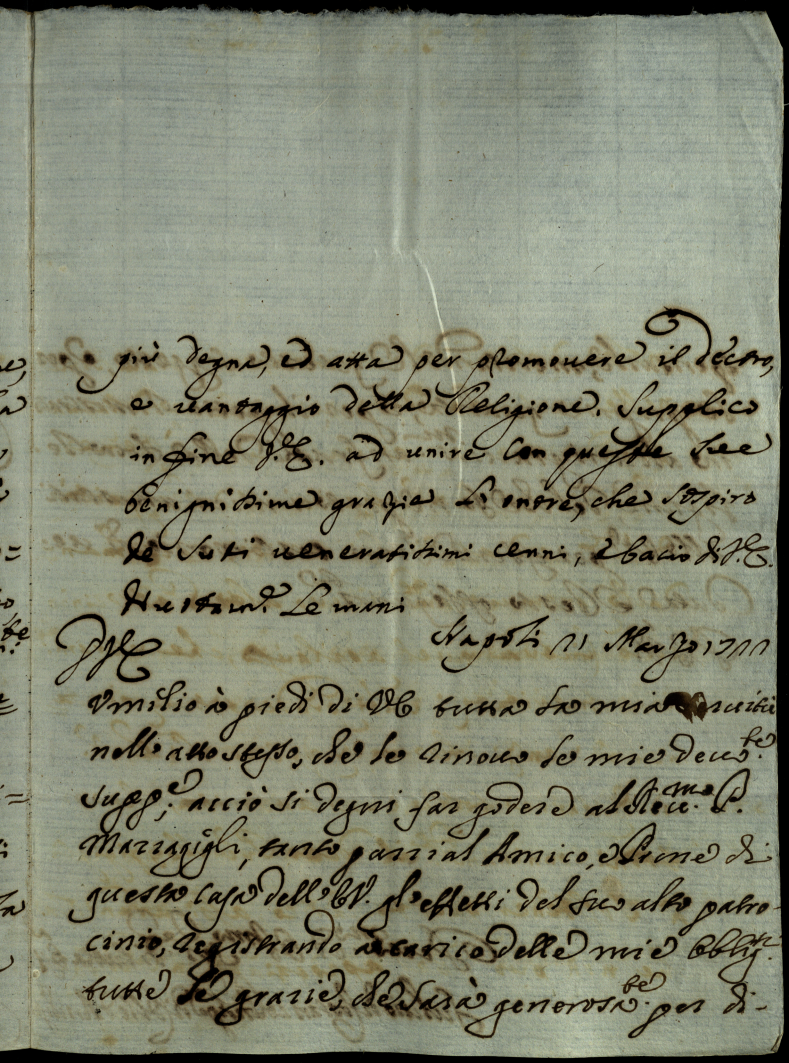 più degna, ed atta per promouere il decoro,
e uantaggio della Religione. Supplico
in fine V.E. ad unire con queste sue
benignissime grazie l'onore, che sospiro
de suoi ueneratissimi cenni, e bacio di V.E.
le mani
Napoli 21 Marzo
Vmilio à piedi di VE tutta la mia
nell'atto stesso, che le rinouo le mie deuo.te
supp.e, acciò si degni far godere al Reu.mo P.
Marzagigli, tanto parzial Amico, e Prone di
questa Casa dell'EV. gl'effetti del suo alto patro-
cinio, registrando à carico delle mie obblig.ni
tutte le grazie, che sarà generosa.te per di-